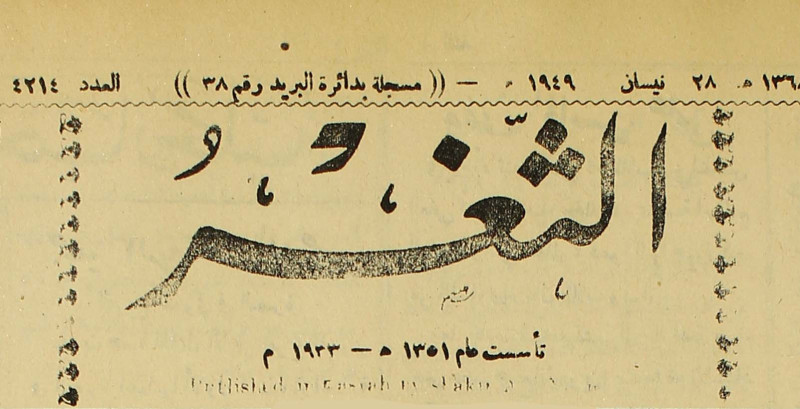 ٢٨ نيسان ١٩٤٩ م — (( مسجلة بدائرة البريد رقم ٣٨ )) العدد ٤٢١٤
الثَّغْرُ
تأسست عام ١٣٥١ ه — ١٩٣٣ م
Published in Basrah by